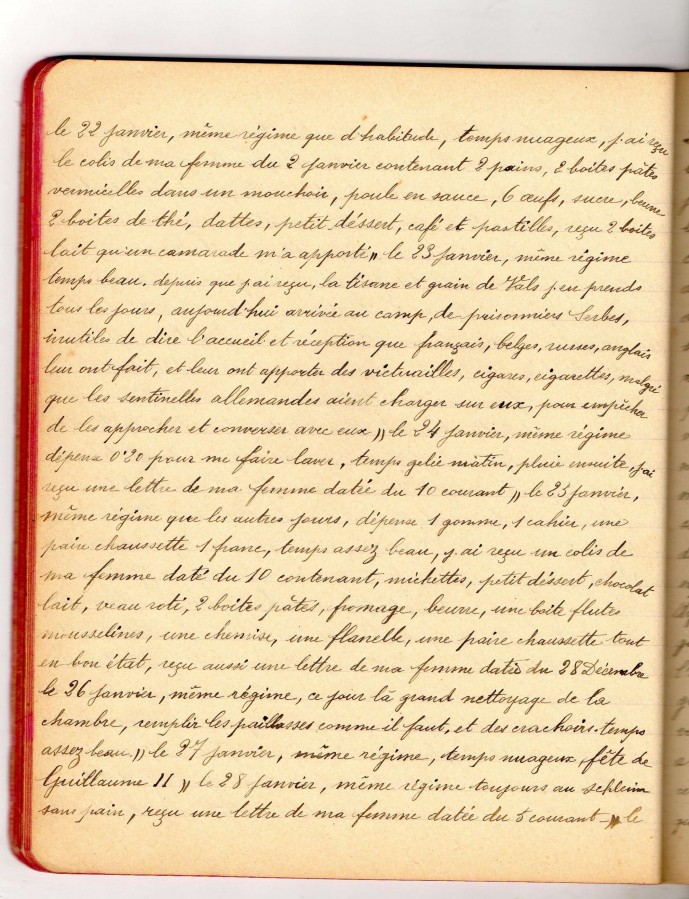 le 22 Janvier, même régime que d'habitude, temps nuageux, j'ai reçu
le colis de ma femme du 2 Janvier contenant 2 pains, 2 boites pâtes
vermicelles dans un mouchoir, poule en sauce, 6 œufs, sucre, beurre
2 boites de thé, dattes, petit déssert, café et pastilles, reçu 2 boites
lait qu'un camarade m'a apporté " le 23 Janvier, même régime
temps beau. depuis que j'ai reçu, la tisane et grain de Vals j'en prends
tous les jours, aujourd'hui arrivée au camp, de prisonniers Serbes,
inutiles de dire l'accueil et réception que français, belges, russes, anglais
leur ont fait, et leur ont apporter des victuailles, cigares, cigarettes, malgré
que les sentinelles allemandes aient charger sur eux, pour empêcher
de les approcher et converser avec eux " le 24 Janvier, même régime
dépense 0'20 pour me faire laver, temps gelée matin, pluie ensuite, j'ai
reçu une lettre de ma femme datée du 10 courant " le 25 Janvier,
même régime que les autres jours, dépense 1 gomme, 1 cahier, une
paire chaussette 1 franc, temps assez beau, j'ai reçu un colis de
ma femme daté du 10 contenant, michettes, petit déssert, chocolat
lait, veau roti, 2 boites pâtés, fromage, beurre, une boite flutes
mousselines, une chemise, une flanelle, une paire chaussette tout
en bon état, reçu aussi une lettre de ma femme datée du 28 Décembre
le 26 Janvier, même régime, ce jour là grand nettoyage de la
chambre, remplir les paillasses comme il faut, et des crachoirs. temps
assez beau " le 27 Janvier, même régime, temps nuageux, fête de
Guillaume II " le 28 Janvier, même régime toujours au schleim
sans pain, reçu une lettre de ma femme datée du 5 courant - " le